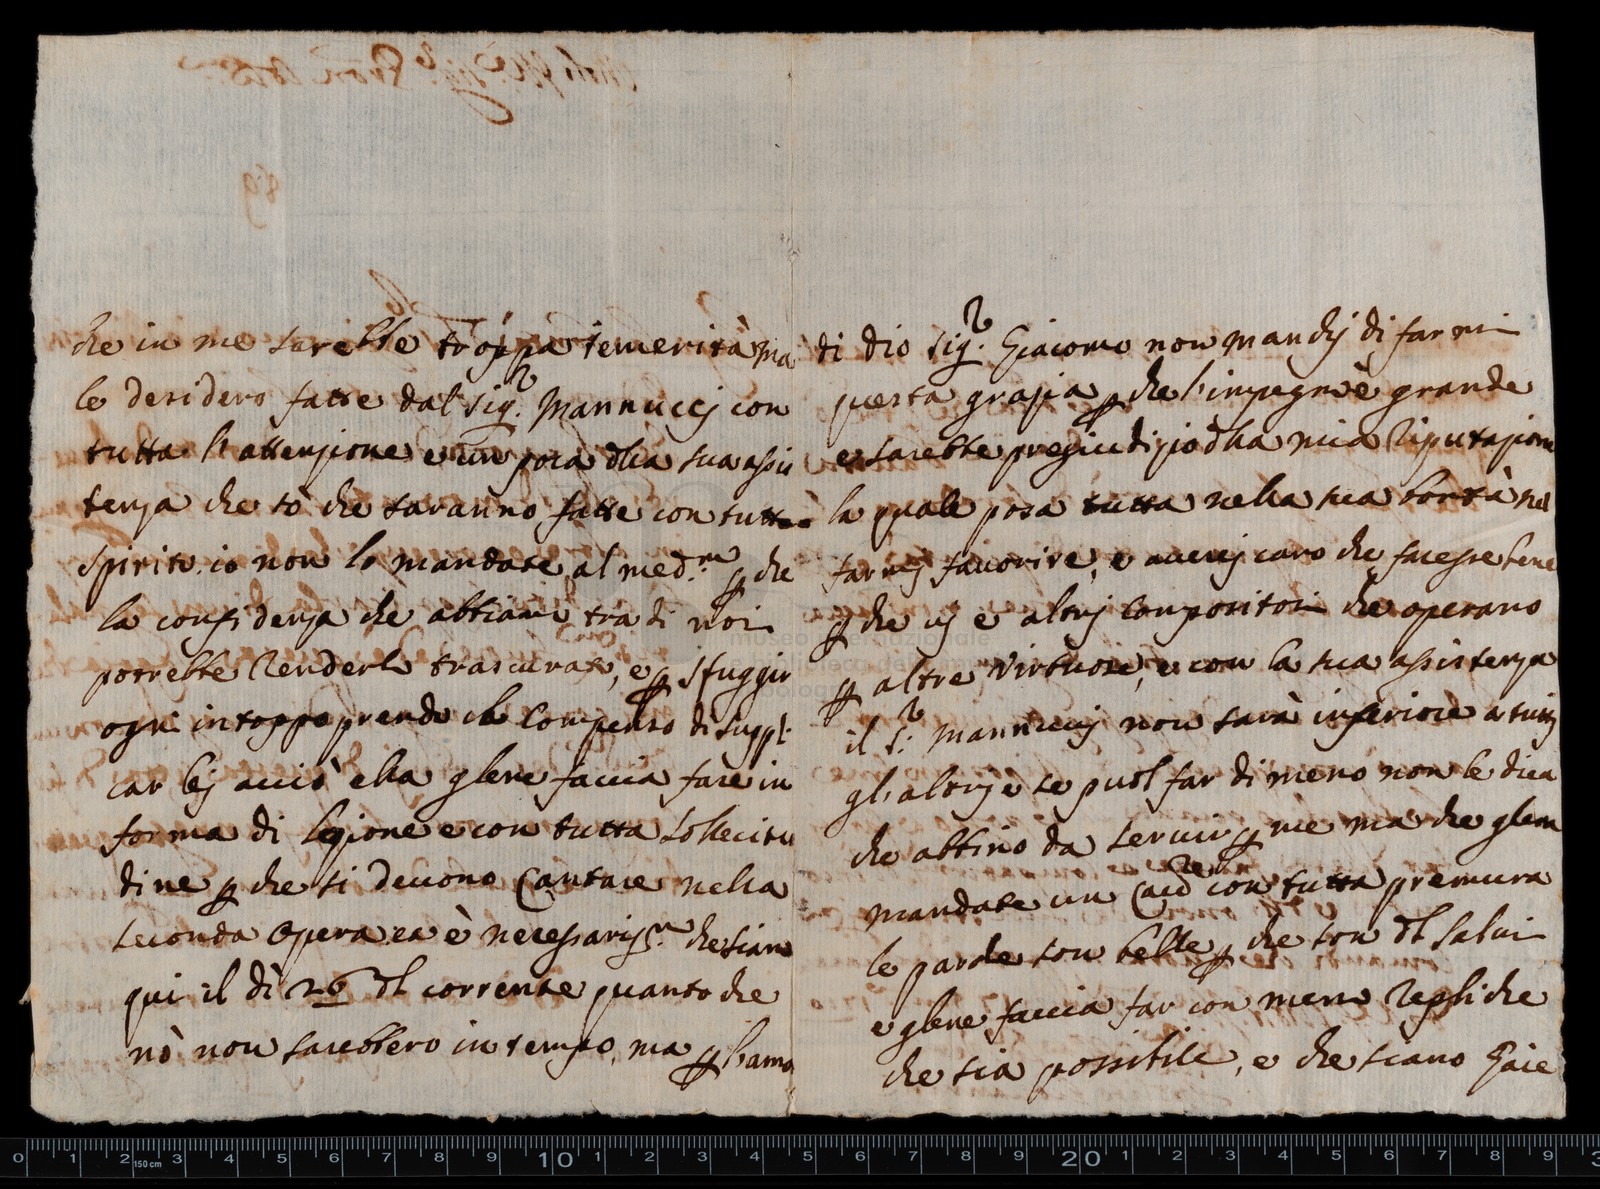 che in me sarebbe troppa temerità ma
le desidero fatte dal Sig.r Mannuccj con
tutta l'attenzione e un poca d'lla sua assis
tenza che sò che saranno fatte con tutto
spirito. io non lo mandate al med.mo p che
la confidenza che abbiamo tra di noi
potrebbe renderlo trascurato, e p sfuggir
ogni intoppo prendo il compenso di suppli
car lej acciò ella gliene faccia fare in
forma di lezione e con tutta sollecitu
dine p che si deuono Cantare nella
seconda Opera ea è necessarijss.mo che siano
qui il dì 26 d'l corrente quanto che
nò non sarebbero in tempo, ma p l'amo
di dio Sig.r Giacomo non manchj di farmi
questa grazia p che l'impegno è grande
e sarebbe pregiudizio d'lla mia riputazione
la quale posa tutta nella sua bontà nel
farmj fauorire, e auerej caro che facesse bene
p che uj è altrj compositori che operano
p altre virtuose, e con la sua assistenza
il S.r Mannuccj non sarà inferiore a tuttj
gl'altrj e se può far di meno non le dica
che abbino da seruir p me ma che gliene
mandate un Caure con tutta premura
le parole son belle p che son d'l Saluini
e gliene faccia far con meno repliche
che sia possibile, e che siano Gaie